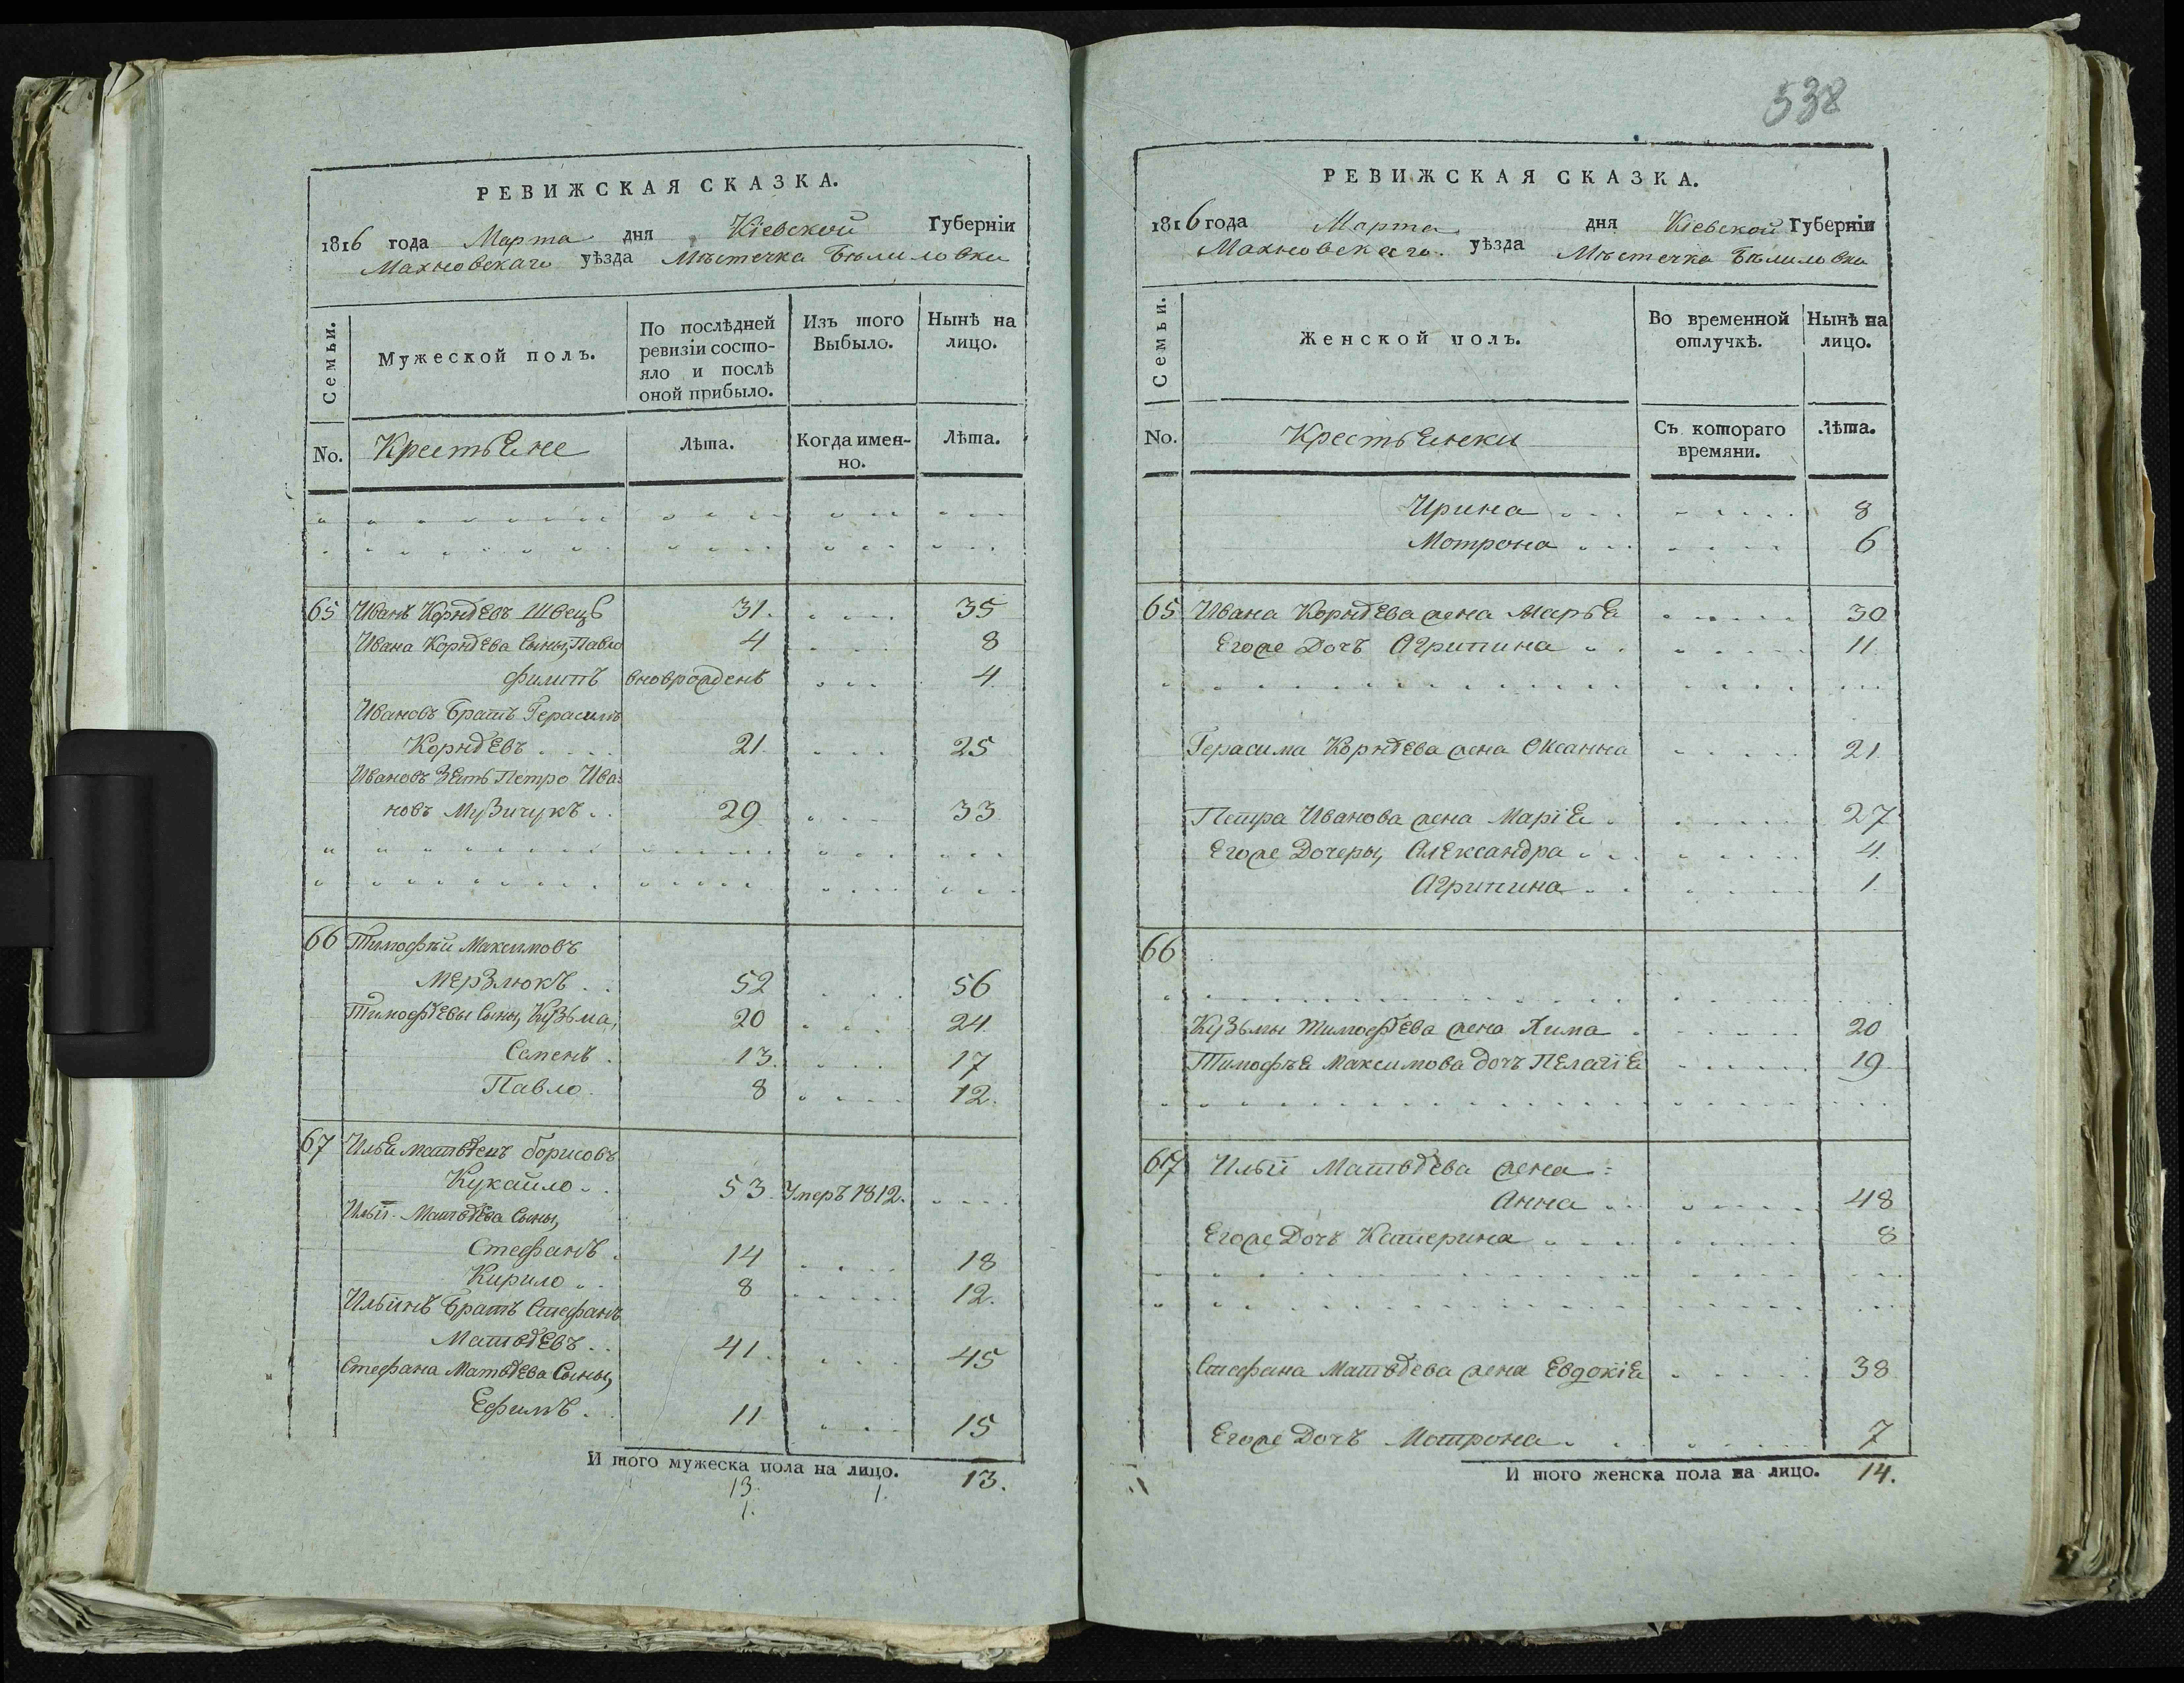 538
РЕВИЖСКАЯ СКАЗКА.
1816 года Марта дня Кіевской Губерніи
Махновскаго уѣзда Мѣстечка Бѣлиловки
Семьи.
Мужеской полъ.
По послѣдней
ревизіи состо-
яло и послѣ
оной прибыло.
Изъ того
Выбыло.
Нынѣ на
лицо.
No.
Крестьяне
Лѣта.
Когда имен-
но.
Лѣта.
65 Иванъ Корнѣевъ Швецъ 31. 35
Ивана Корнѣева Сыны, Павло 4 8
Филипъ вноврожденъ 4
Ивановъ Братъ Герасимъ
Корнѣевъ 21. 25
Ивановъ Зять Петро Ива:
новъ Музичукъ 29 33
66 Тимофѣй Максимовъ
Мерзлюкъ 52 56
Тимофѣевы Сыны, Кузьма, 20 24
Семенъ 13. 17
Павло 8 12.
67 Илья Матвѣевъ Борисовъ
Кукайло 53 Умеръ 1812.
Ильи Матвѣева Сыны,
Стефанъ 14 18
Кирило 8 12.
Ильинъ Братъ Стефанъ
Матвѣевъ 41. 45
Стефана Матвѣева Сыны,
Ефимъ 11 15
И того мужеска пола на лицо. 13.
13. 1.
1.
РЕВИЖСКАЯ СКАЗКА.
1816 года Марта дня Кіевской Губерніи
Махновскаго уѣзда Мѣстечка Бѣлиловки
Семьи.
Женской полъ.
Во временной
отлучкѣ.
Нынѣ на
лицо.
No.
Крестьянки
Съ котораго
времяни.
Лѣта.
Ирина 8
Мотрона 6
65 Ивана Корнѣева жена Марья 30
Егоже Дочъ Агрипина 11
Герасима Корнѣева жена Оксанна 21.
Петра Иванова жена Марія 27
Егоже Дочеры, Александра 4
Агрипина 1
66
Кузьмы Тимофѣева жена Хима 20
Тимофѣя Максимова дочъ Пелагія 19
67 Ильи Матвѣева жена:
Анна 48
Егоже Дочъ Катерина 8
Стефана Матвѣева жена Евдокія 38
Егоже Дочъ Мотрона 7
И того женска пола на лицо. 14.